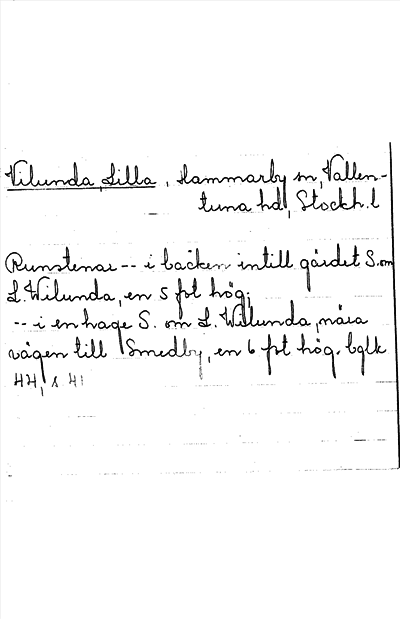 Vilunda, Lilla, Hammarby sn, Vallen-
tuna hd, Stockh. l
Runstenar -- i backen intill gärdet S. om
L. Wilunda, en 5 fot hög;
-- i en hage S. om L. Wilunda, nära
vägen till Smedby, en 6 fot hög. bglk
44, s 41